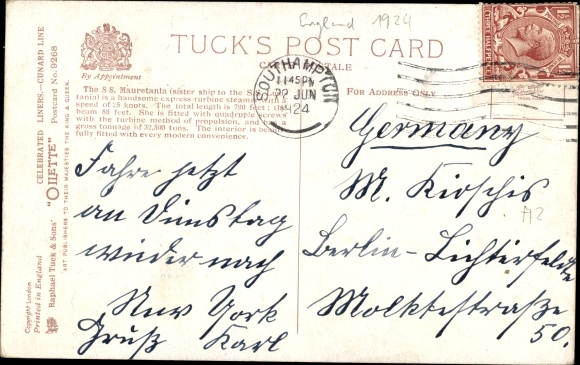 England 1924
TUCK'S POST CARD
By Appointment
The S S. Mauretania (sister ship to the
tania) is a handsome express turbine steamer with a
speed of 25 knots. The total length is 790 feet; the
beam 88 feet. She is fitted with quadruple screws
with the turbine method of propulsion, and has a
gross tonnage of 32,500 tons. The interior is beauti-
fully fitted with every modern convenience.
FOR ADDRESS ONLY
SOUTHAMPTON
11 45 PM
22 JUN
1924
CELEBRATED LINERS.—CUNARD LINE
"OILETTE" Postcard No. 9268
Raphael Tuck & Sons'
ART PUBLISHERS TO THEIR MAJESTIES THE KING & QUEEN.
Copyright London
Printed in England
Fahre jetzt
an Dinstag
wieder nach
New York
Gruß Karl
Germany
M. Kioschis
A2
Berlin-Lichterfelde
Molktestraße
50.